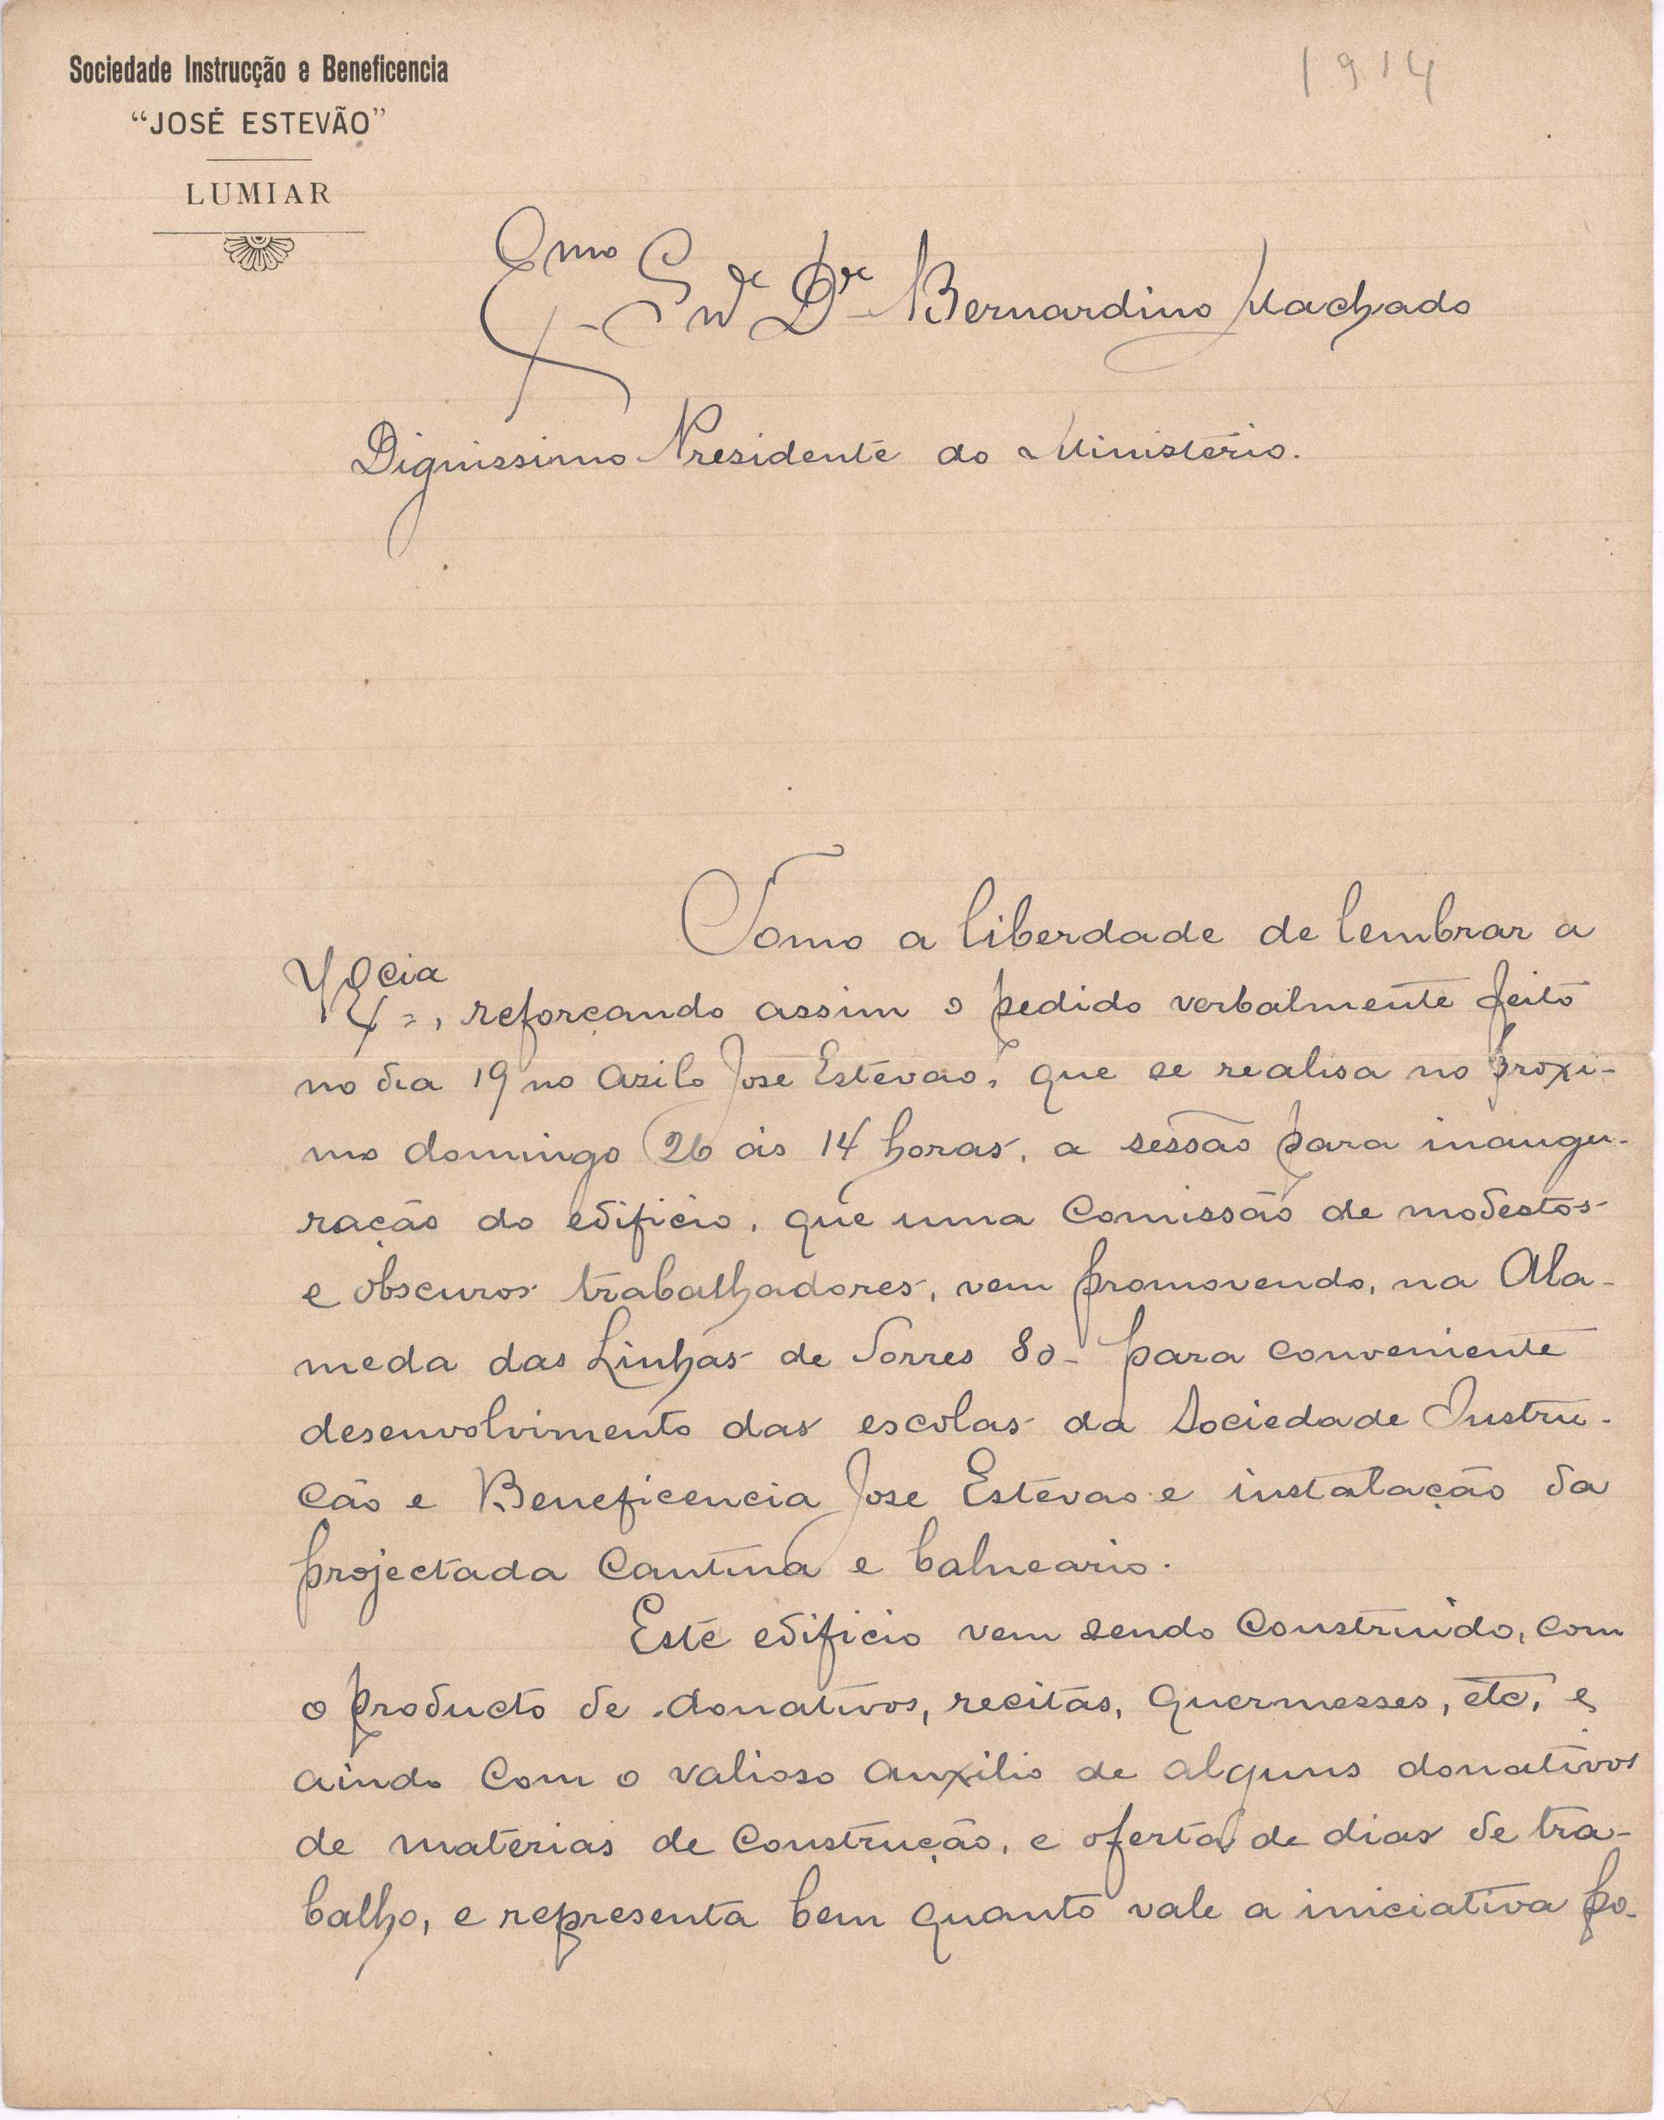 Sociedade Instrucção e Beneficencia
"JOSÉ ESTEVÃO"
LUMIAR
1914
Exmo Snr Dr Bernardino Machado
Dignissimo Presidente do Ministerio.
Tomo a liberdade de lembrar a
V Excia, reforçando assim o pedido verbalmente feito
no dia 19 no Azilo José Estevão, que se realisa no proxi-
mo domingo 26 ás 14 horas, a sessão para inaugu-
ração do edificio, que uma Comissão de modestos
e obscuros trabalhadores, vem promovendo, na Ala-
meda das Linhas de Torres 80- para conveniente
desenvolvimento das escolas da Sociedade Instru-
ção e Beneficencia José Estevão e instalação da
projectada Cantina e balneario.
Este edificio vem sendo construido, com
o producto de donativos, recitas, quermesses, etc, e
ainda com o valioso auxilio de alguns donativos
de materias de construção, e oferta de dias de tra-
balho, e representa bem quanto vale a iniciativa po-